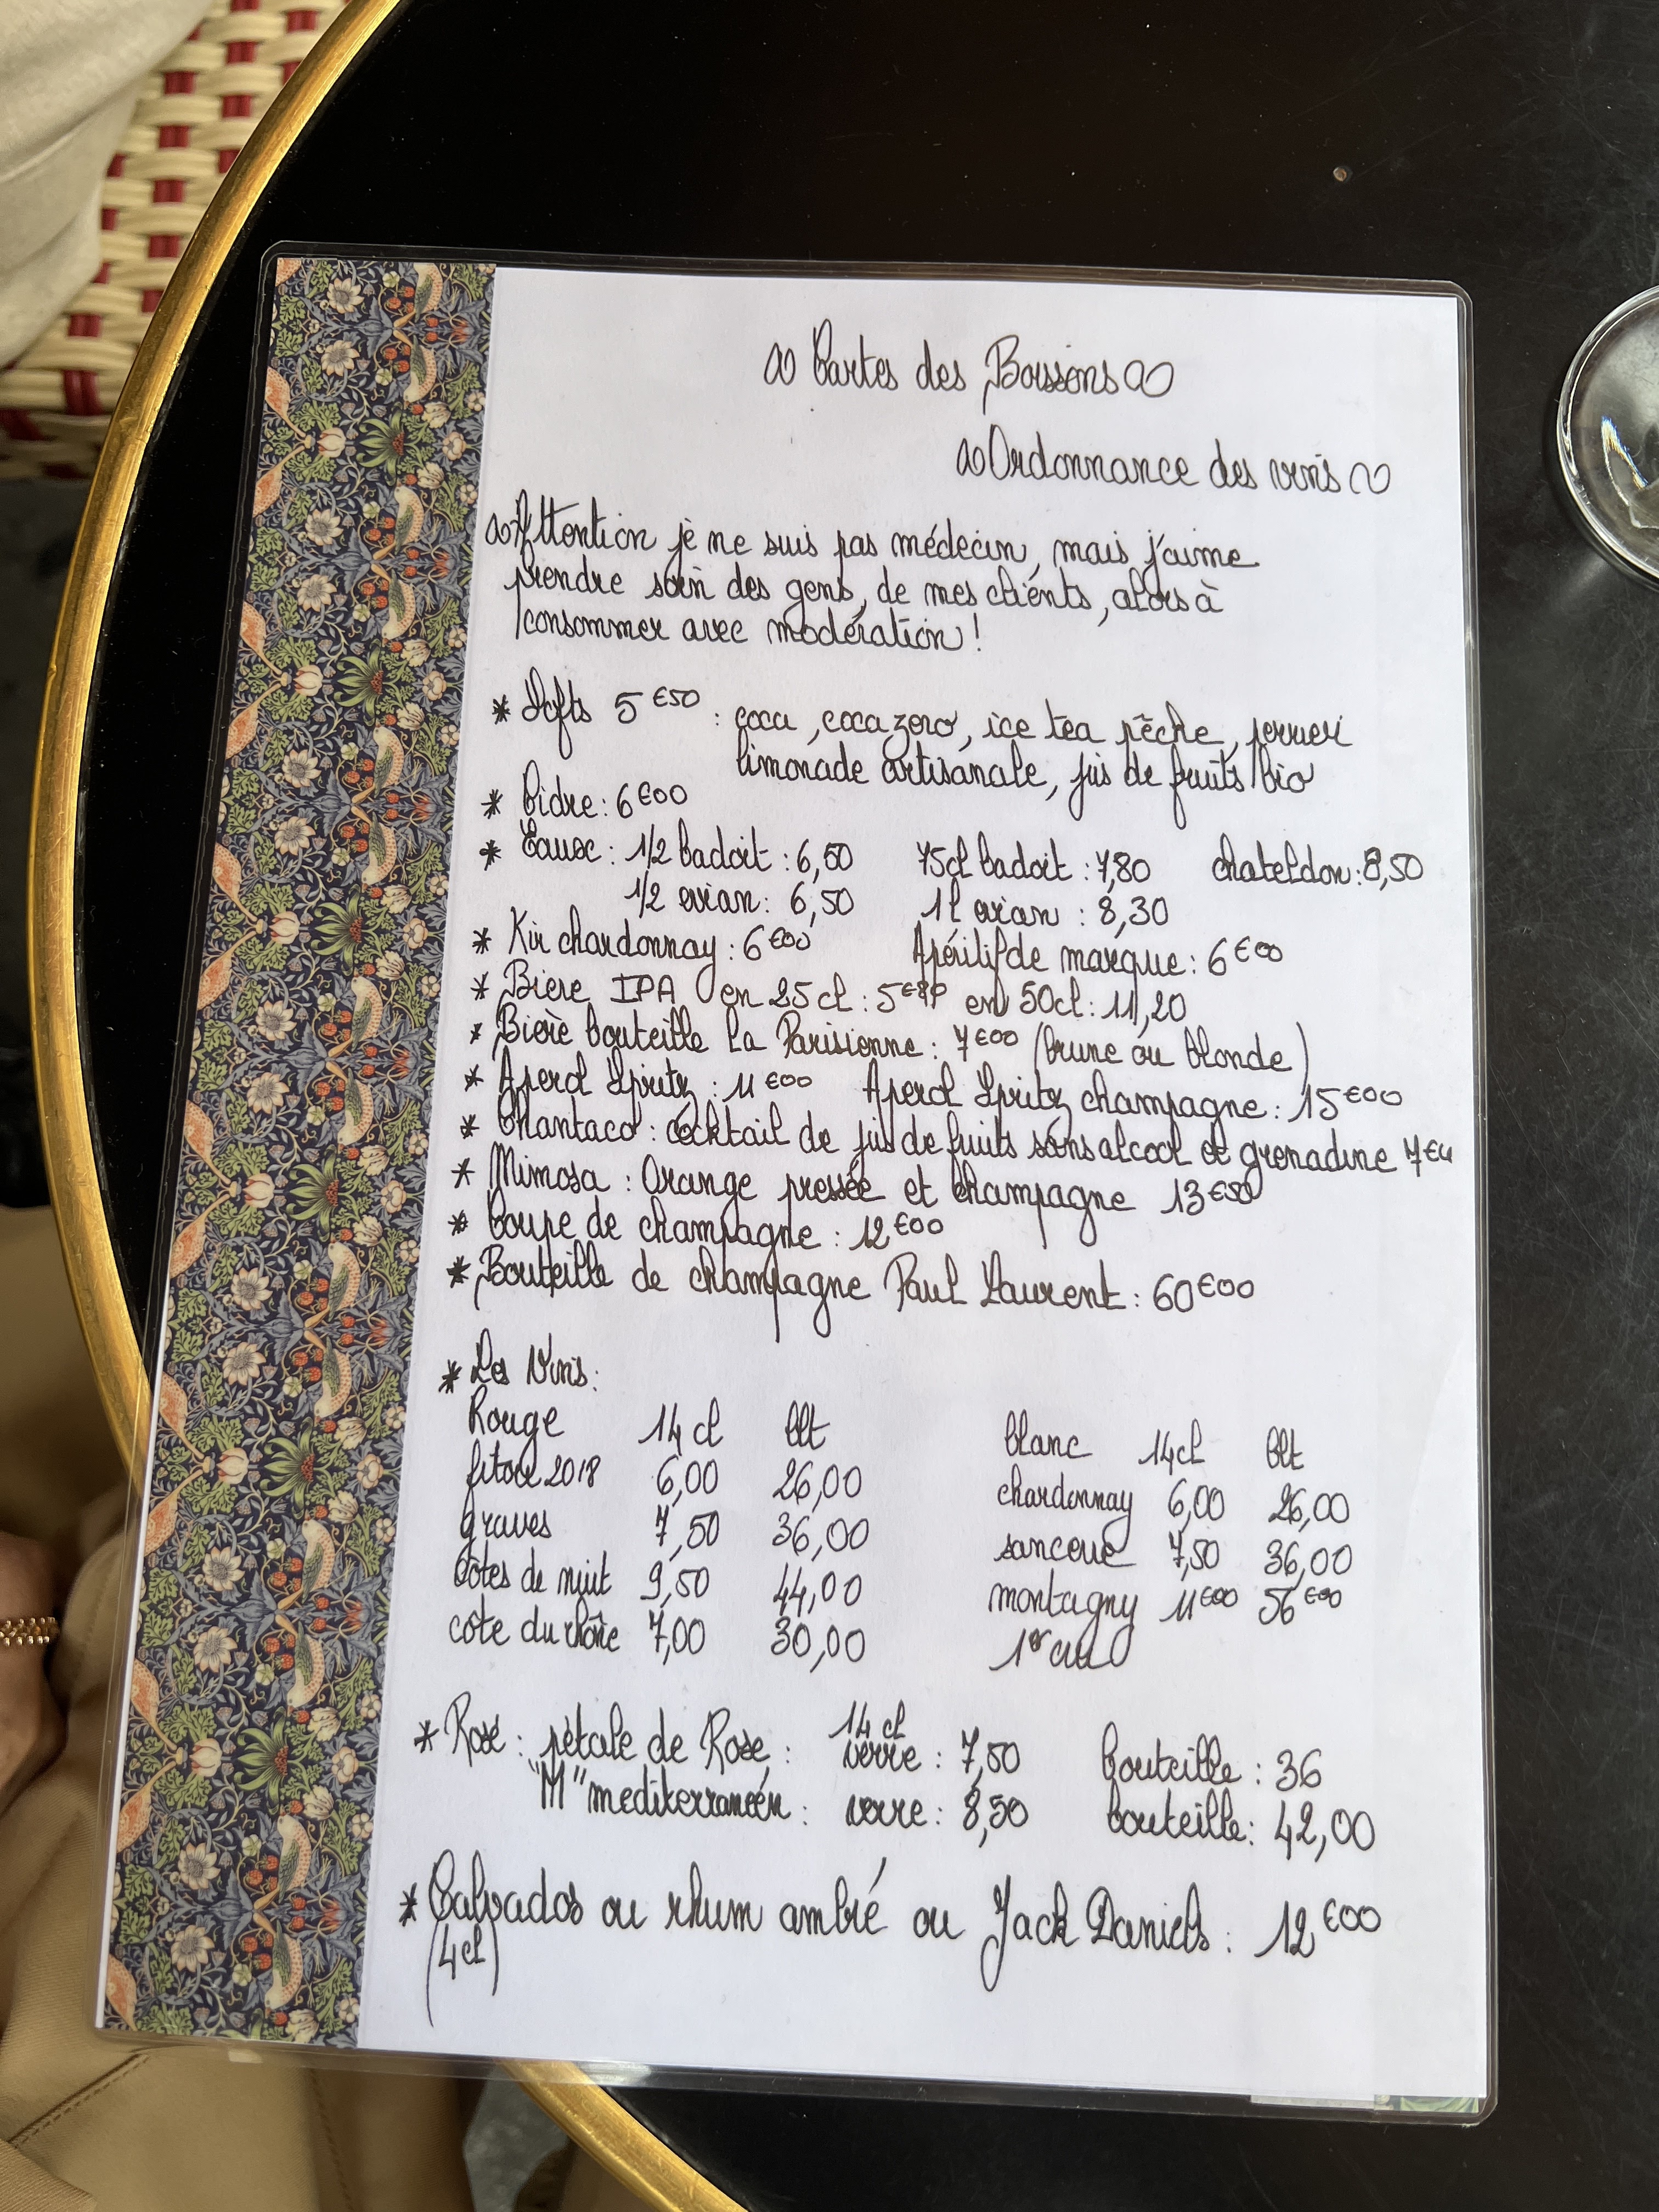 Cartes des Boissons
Ordonnance des vins
Attention je ne suis pas médecin, mais j'aime
prendre soin des gens, de mes clients, alors à
consommer avec modération !
* Softs 5€50 : coca, coca zero, ice tea pêche, perrier
limonade artisanale, jus de fruits bio
* Cidre : 6€00
* Eaux : 1/2 badoit : 6,50 75cl badoit : 7,80 chateldon : 8,50
1/2 evian : 6,50 1l evian : 8,30
* Kir chardonnay : 6€00 Apéritif de marque : 6€00
* Biere IPA en 25cl : 5€80 en 50cl : 11,20
* Bière bouteille la Parisienne : 7€00 (brune ou blonde)
* Aperol Spritz : 11€00 Aperol Spritz champagne : 15€00
* Chantaco : cocktail de jus de fruits sans alcool et grenadine
* Mimosa : Orange pressée et champagne 13€50
* Coupe de champagne : 12€00
* Bouteille de champagne Paul Laurent : 60€00
* Les Vins :
Rouge 14 cl blt blanc 14cl blt
fitou 2018 6,00 26,00 chardonnay 6,00 26,00
graves 7,50 36,00 sancerre 7,50 36,00
côtes de nuit 9,50 44,00 montagny 11€00 56€00
côte du rhône 7,00 30,00 1er cru
14 cl
* Rosé : pétale de Rose : verre : 7,50 bouteille : 36
"M" mediterranéen : verre : 8,50 bouteille : 42,00
* Calvados ou rhum ambré ou Jack Daniels : 12€00
(4cl)